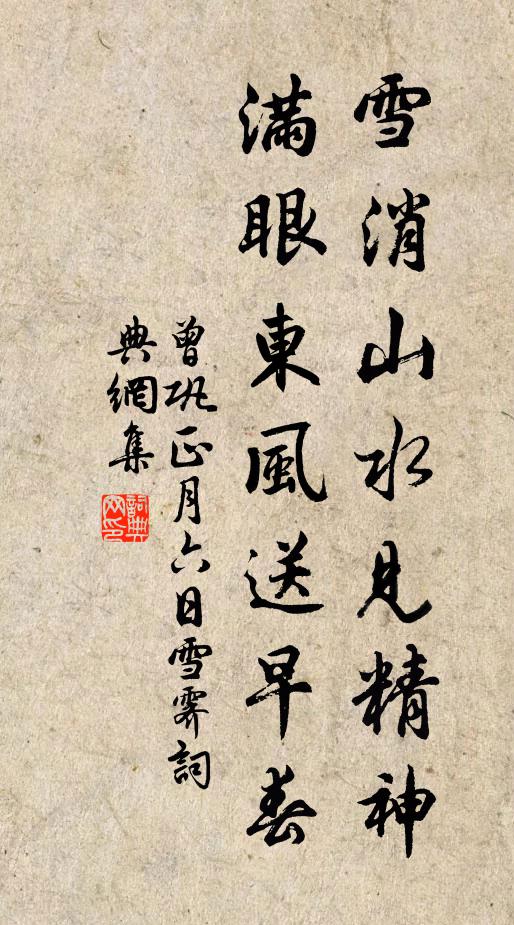 雪消山水見精神
滿眼東風送早春
曾巩正月六日雪霽詞
典網集
詞典網印